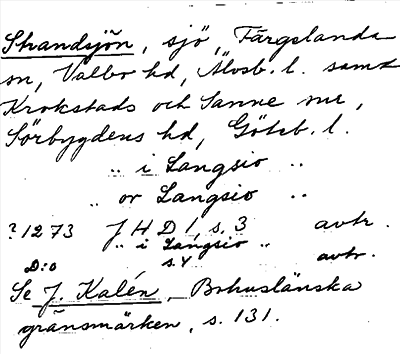 Strandsjön, sjö, Färgelanda
sn, Valbo hd, Älvsb. l. samt
Krokstads och Sanne snr,
Sörbygdens hd, Göteb. l.
„ i Langsio „
„ or Langsio „
? 1273 J H D 1, s. 3 avtr.
„ i Langsio „
D:o s. 4 avtr.
Se J. Kalén, Bohuslänska
gränsmärken, s. 131.